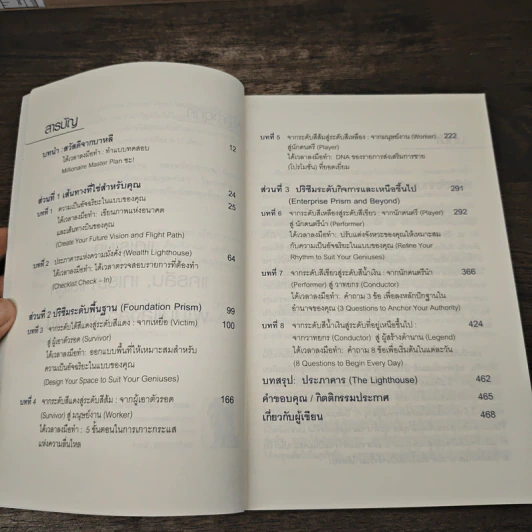 สารบัญ
บทนำ : สวัสดีจากบาหลี 12
ได้เวลาลงมือทำ : ทำแบบทดสอบ
Millionaire Master Plan ซะ!
ส่วนที่ 1 เส้นทางที่ใช่สำหรับคุณ 24
บทที่ 1 ความเป็นอัจฉริยะในแบบของคุณ 25
ได้เวลาลงมือทำ : เขียนภาพแห่งอนาคต
และเส้นทางบินของคุณ
(Create Your Future Vision and Flight Path)
บทที่ 2 ประภาคารแห่งความมั่งคั่ง (Wealth Lighthouse) 64
ได้เวลาลงมือทำ : ได้เวลาตรวจสอบรายการที่ต้องทำ
(Checklist Check – In)
ส่วนที่ 2 ปริซึมระดับพื้นฐาน (Foundation Prism) 99
บทที่ 3 จากระดับใต้สีแดงสู่ระดับสีแดง : จากเหยื่อ (Victim) 100
สู่ ผู้เอาตัวรอด (Survivor)
ได้เวลาลงมือทำ : ออกแบบพื้นที่ให้เหมาะสมสำหรับ
ความเป็นอัจฉริยะในแบบของคุณ
(Design Your Space to Suit Your Geniuses)
บทที่ 4 จากระดับสีแดงสู่ระดับสีส้ม : จากผู้เอาตัวรอด 166
(Survivor) สู่ มนุษย์งาน (Worker)
ได้เวลาลงมือทำ : 5 ขั้นตอนในการเกาะกระแส
แห่งความลื่นไหล
บทที่ 5 จากระดับสีส้มสู่ระดับสีเหลือง : จากมนุษย์งาน (Worker) 222
สู่นักดนตรี (Player)
ได้เวลาลงมือทำ : DNA ของรายการส่งเสริมการขาย
(โปรโมชั่น) ที่ยอดเยี่ยม
ส่วนที่ 3 ปริซึมระดับกิจการและเหนือขึ้นไป 291
(Enterprise Prism and Beyond)
บทที่ 6 จากระดับสีเหลืองสู่ระดับสีเขียว : จากนักดนตรี (Player) 292
สู่ นักดนตรีนำ (Performer)
ได้เวลาลงมือทำ : ปรับแต่งจังหวะของคุณให้เหมาะสม
กับความเป็นอัจฉริยะในแบบของคุณ (Refine Your
Rhythm to Suit Your Geniuses)
บทที่ 7 จากระดับสีเขียวสู่ระดับสีน้ำเงิน : จากนักดนตรีนำ 366
(Performer) สู่ วาทยกร (Conductor)
ได้เวลาลงมือทำ : คำถาม 3 ข้อ เพื่อลงหลักปักฐานใน
อำนาจของคุณ (3 Questions to Anchor Your Authority)
บทที่ 8 จากระดับสีน้ำเงินสู่ระดับที่อยู่เหนือขึ้นไป : 424
จากวาทยกร (Conductor) สู่ ผู้สร้างตำนาน (Legend)
ได้เวลาลงมือทำ : คำถาม 8 ข้อเพื่อเริ่มต้นในแต่ละวัน
(8 Questions to Begin Every Day)
บทสรุป: ประภาคาร (The Lighthouse) 462
คำขอบคุณ / กิตติกรรมประกาศ 465
เกี่ยวกับผู้เขียน 468